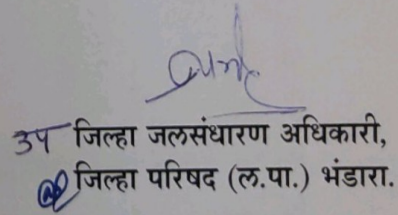 उप जिल्हा जलसंधारण अधिकारी,
जिल्हा परिषद (ल.पा.) भंडारा.